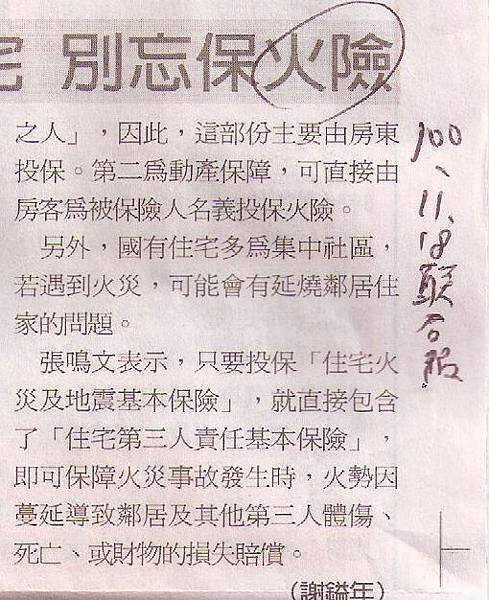 宅 別忘保火險
之人」，因此，這部份主要由房東
投保。第二為動產保障，可直接由
房客為被保險人名義投保火險。
另外，國有住宅多為集中社區，
若遇到火災，可能會有延燒鄰居住
家的問題。
張鳴文表示，只要投保「住宅火
災及地震基本保險」，就直接包含
了「住宅第三人責任基本保險」，
即可保障火災事故發生時，火勢因
蔓延導致鄰居及其他第三人體傷、
死亡、或財物的損失賠償。
（謝鎰年）
100、11、18聯合報